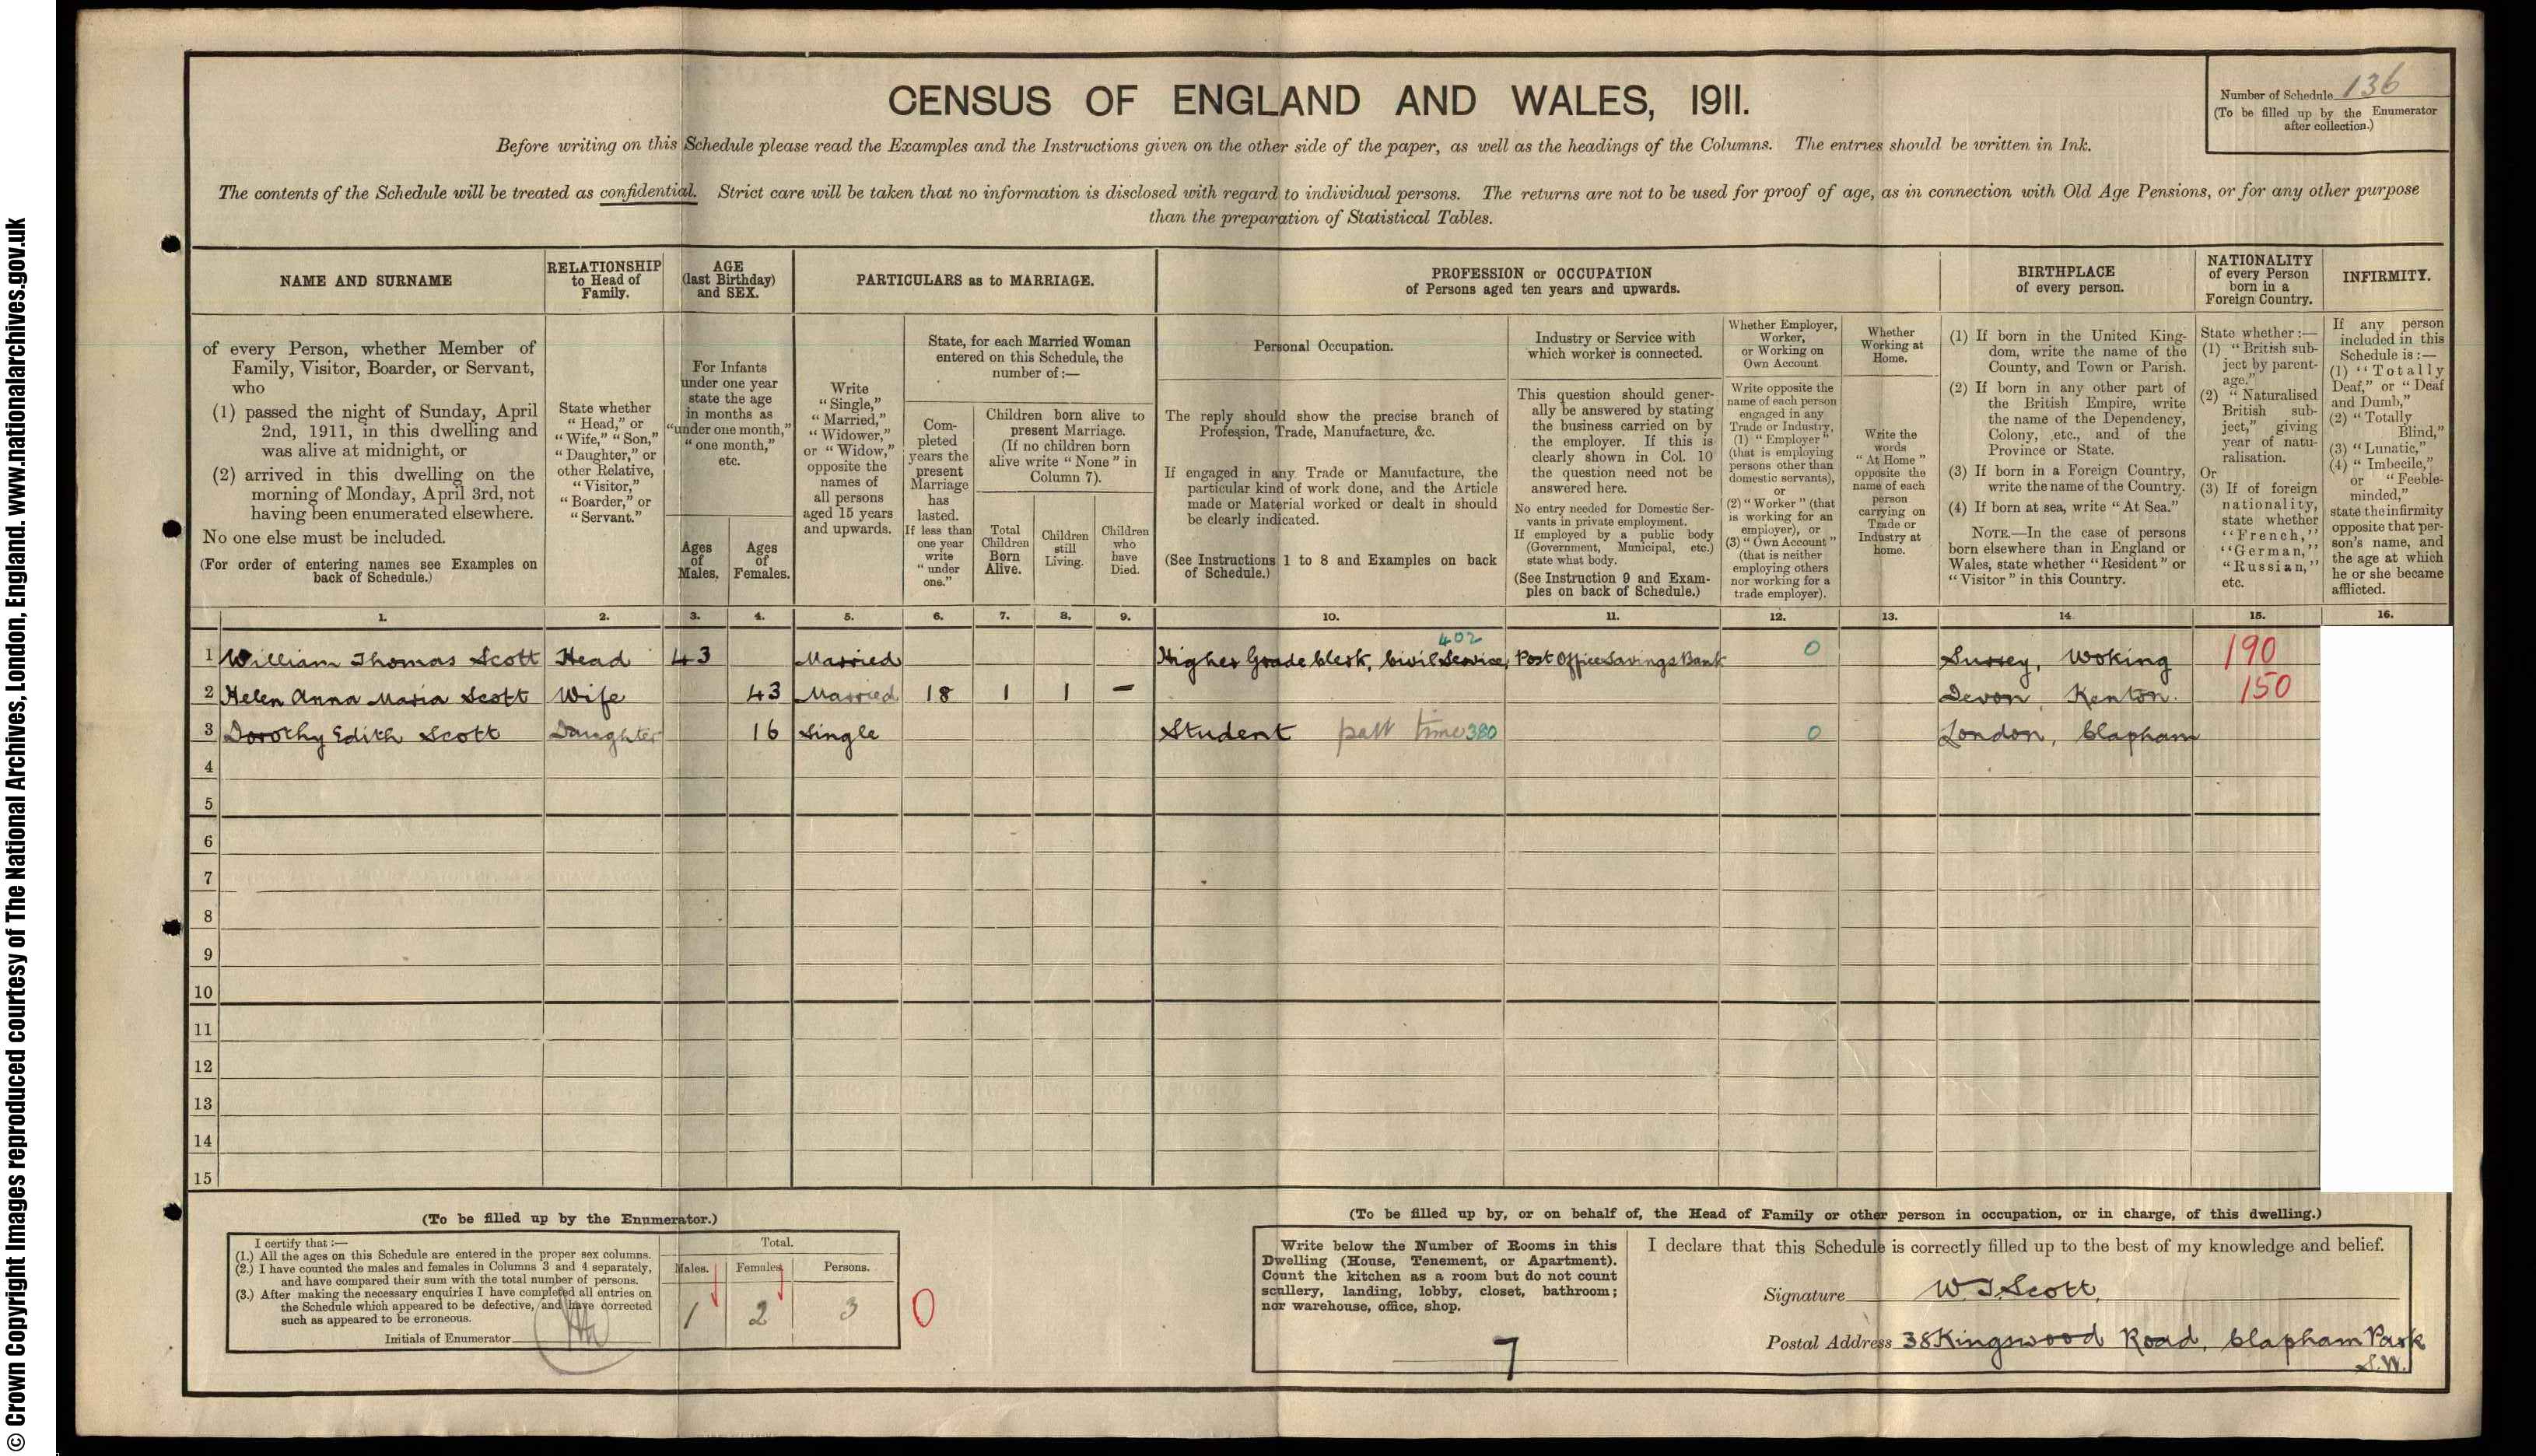 © Crown Copyright Images reproduced courtesy of The National Archives, London, England. www.nationalarchives.gov.uk
CENSUS OF ENGLAND AND WALES, 1911.
Number of Schedule 136
(To be filled up by the Enumerator
after collection.)
Before writing on this Schedule please read the Examples and the Instructions given on the other side of the paper, as well as the headings of the Columns. The entries should be written in Ink.
The contents of the Schedule will be treated as confidential. Strict care will be taken that no information is disclosed with regard to individual persons. The returns are not to be used for proof of age, as in connection with Old Age Pensions, or for any other purpose
than the preparation of Statistical Tables.
NAME AND SURNAME
RELATIONSHIP
to Head of
Family.
AGE
(last Birthday)
and SEX.
PARTICULARS as to MARRIAGE.
PROFESSION or OCCUPATION
of Persons aged ten years and upwards.
BIRTHPLACE
of every person.
NATIONALITY
of every Person
born in a
Foreign Country.
INFIRMITY.
of every Person, whether Member of
Family, Visitor, Boarder, or Servant,
who
(1) passed the night of Sunday, April
2nd, 1911, in this dwelling and
was alive at midnight, or
(2) arrived in this dwelling on the
morning of Monday, April 3rd, not
having been enumerated elsewhere.
No one else must be included.
(For order of entering names see Examples on
back of Schedule.)
State whether
"Head," or
"Wife," "Son,"
"Daughter," or
other Relative,
"Visitor,"
"Boarder," or
"Servant."
For Infants
under one year
state the age
in months as
"under one month,"
"one month,"
etc.
Ages
of
Males.
Ages
of
Females.
Write
"Single,"
"Married,"
"Widower,"
or "Widow,"
opposite the
names of
all persons
aged 15 years
and upwards.
State, for each Married Woman
entered on this Schedule, the
number of:—
Com-
pleted
years the
present
Marriage
has
lasted.
If less than
one year
write
"under
one."
Children born alive to
present Marriage.
(If no children born
alive write "None" in
Column 7).
Total
Children
Born
Alive.
Children
still
Living.
Children
who
have
Died.
Personal Occupation.
The reply should show the precise branch of
Profession, Trade, Manufacture, &c.
If engaged in any Trade or Manufacture, the
particular kind of work done, and the Article
made or Material worked or dealt in should
be clearly indicated.
(See Instructions 1 to 8 and Examples on back
of Schedule.)
Industry or Service with
which worker is connected.
This question should gener-
ally be answered by stating
the business carried on by
the employer. If this is
clearly shown in Col. 10
the question need not be
answered here.
No entry needed for Domestic Ser-
vants in private employment.
If employed by a public body
(Government, Municipal, etc.)
state what body.
(See Instruction 9 and Exam-
ples on back of Schedule.)
Whether Employer,
Worker,
or Working on
Own Account.
Write opposite the
name of each person
engaged in any
Trade or Industry,
(1) "Employer"
(that is employing
persons other than
domestic servants),
or
(2) "Worker" (that
is working for an
employer), or
(3) "Own Account"
(that is neither
employing others
nor working for a
trade employer).
Whether
Working at
Home.
Write the
words
"At Home"
opposite the
name of each
person
carrying on
Trade or
Industry at
home.
(1) If born in the United King-
dom, write the name of the
County, and Town or Parish.
(2) If born in any other part of
the British Empire, write
the name of the Dependency,
Colony, etc., and of the
Province or State.
(3) If born in a Foreign Country,
write the name of the Country.
(4) If born at sea, write "At Sea."
NOTE.—In the case of persons
born elsewhere than in England or
Wales, state whether "Resident" or
"Visitor" in this Country.
State whether:—
(1) "British sub-
ject by parent-
age."
(2) "Naturalised
British sub-
ject," giving
year of natu-
ralisation.
Or
(3) If of foreign
nationality,
state whether
"French,"
"German,"
"Russian,"
etc.
If any person
included in this
Schedule is:—
(1) "Totally
Deaf," or "Deaf
and Dumb,"
(2) "Totally
Blind,"
(3) "Lunatic,"
(4) "Imbecile,"
or "Feeble-
minded,"
state the infirmity
opposite that per-
son's name, and
the age at which
he or she became
afflicted.
1. 2. 3. 4. 5. 6. 7. 8. 9. 10. 11. 12. 13. 14. 15. 16.
402
1 William Thomas Scott Head 43 Married Higher Grade Clerk, Civil Service, Post Office Savings Bank 0 Surrey, Woking 190
2 Helen Anna Maria Scott Wife 43 Married 18 1 1 — Devon, Kenton. 150
3 Dorothy Edith Scott Daughter 16 Single Student part time 380 0 London, Clapham
4
5
6
7
8
9
10
11
12
13
14
15
(To be filled up by the Enumerator.)
I certify that:—
(1.) All the ages on this Schedule are entered in the proper sex columns.
(2.) I have counted the males and females in Columns 3 and 4 separately,
and have compared their sum with the total number of persons.
(3.) After making the necessary enquiries I have completed all entries on
the Schedule which appeared to be defective, and have corrected
such as appeared to be erroneous.
Initials of Enumerator
Total.
Males. Females. Persons.
1 2 3 0
(To be filled up by, or on behalf of, the Head of Family or other person in occupation, or in charge, of this dwelling.)
Write below the Number of Rooms in this
Dwelling (House, Tenement, or Apartment).
Count the kitchen as a room but do not count
scullery, landing, lobby, closet, bathroom;
nor warehouse, office, shop.
7
I declare that this Schedule is correctly filled up to the best of my knowledge and belief.
Signature W. T. Scott.
Postal Address 38 Kingswood Road, Clapham Park
S.W.